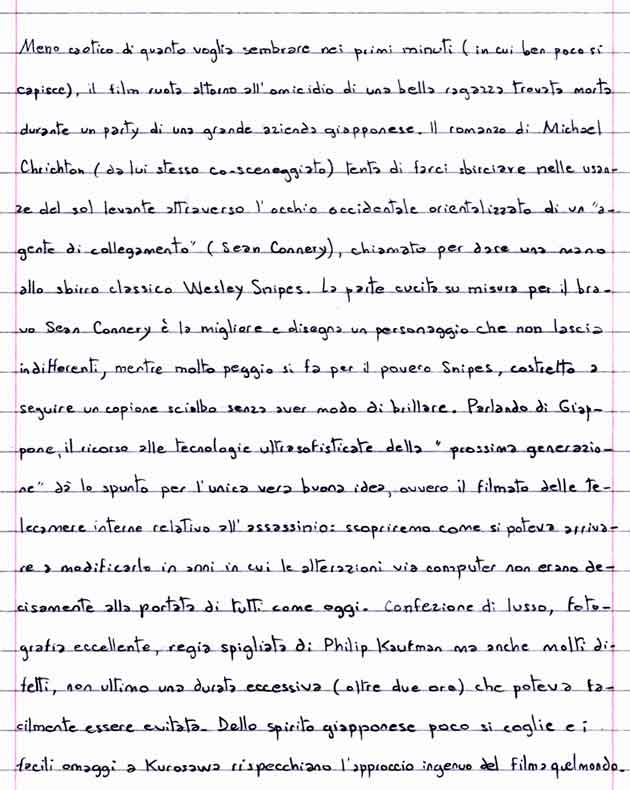 Meno caotico di quanto voglia sembrare nei primi minuti (in cui ben poco si
capisce), il film ruota attorno all'omicidio di una bella ragazza trovata morta
durante un party di una grande azienda giapponese. Il romanzo di Michael
Chrichton (da lui stesso co-sceneggiato) tenta di farci sbirciare nelle usan-
ze del sol levante attraverso l'occhio occidentale orientalizzato di un "a-
gente di collegamento" (Sean Connery), chiamato per dare una mano
allo sbirro classico Wesley Snipes. La parte cucita su misura per il bra-
vo Sean Connery è la migliore e disegna un personaggio che non lascia
indifferenti, mentre molto peggio si fa per il povero Snipes, costretto a
seguire un copione scialbo senza aver modo di brillare. Parlando di Giap-
pone, il ricorso alle tecnologie ultrasofisticate della "prossima generazio-
ne" dà lo spunto per l'unica vera buona idea, ovvero il filmato delle te-
lecamere interne relativo all'assassinio: scopriremo come si poteva arriva-
re a modificarlo in anni in cui le alterazioni via computer non erano de-
cisamente alla portata di tutti come oggi. Confezione di lusso, foto-
grafia eccellente, regia spigliata di Philip Kaufman ma anche molti di-
fetti, non ultimo una durata eccessiva (oltre due ore) che poteva fa-
cilmente essere evitata. Dello spirito giapponese poco si coglie e i
facili omaggi a Kurosawa rispecchiano l'approccio ingenuo del film a quel mondo.